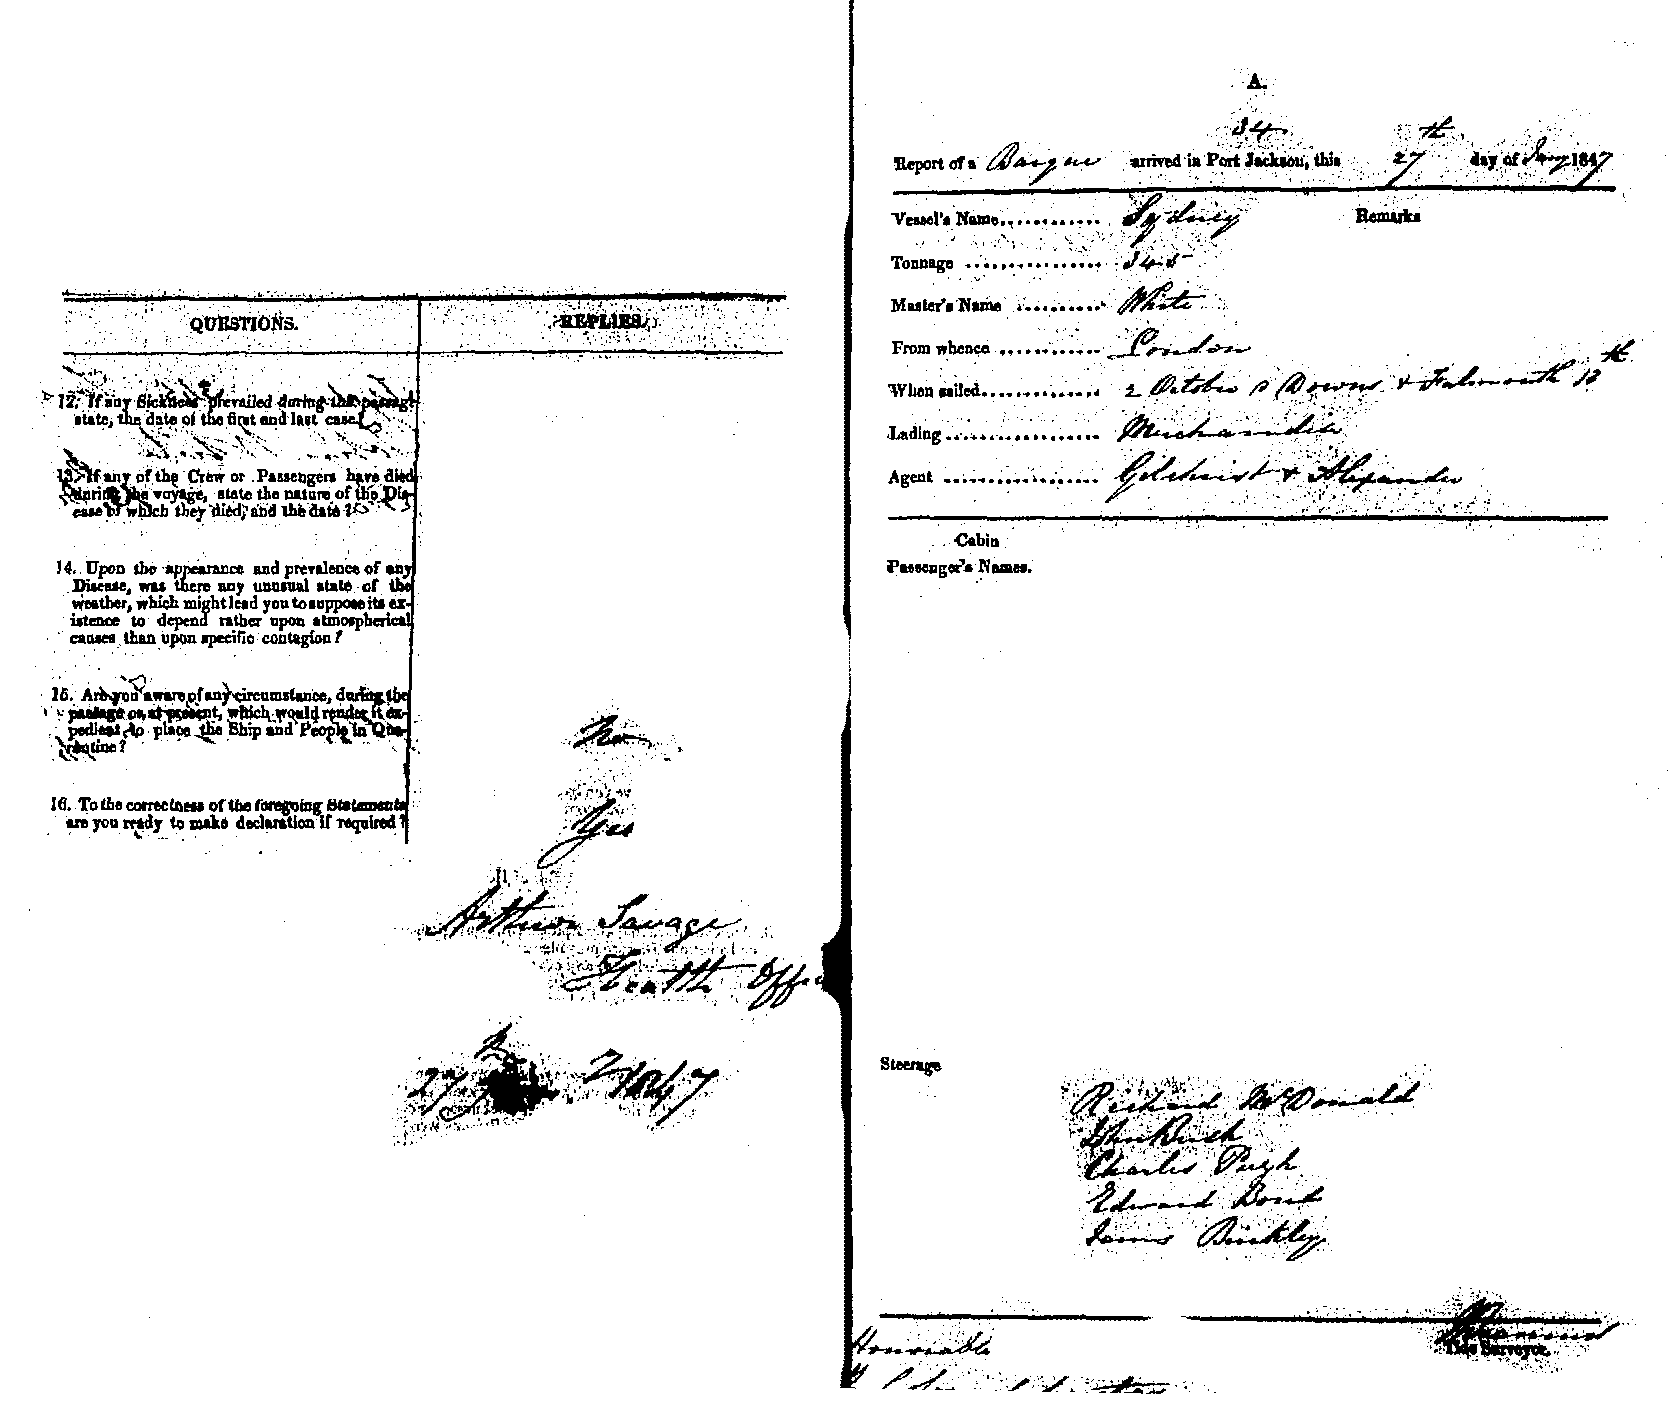 QUESTIONS.
REPLIES.
12. If any Sickness prevailed during the passage
state, the date of the first and last case?
13. If any of the Crew or Passengers have died
during the voyage, state the nature of the Dis-
ease of which they died, and the date?
14. Upon the appearance and prevalence of any
Disease, was there any unusual state of the
weather, which might lead you to suppose its ex-
istence to depend rather upon atmospherical
causes than upon specific contagion?
15. Are you aware of any circumstance, during the
passage or at present, which would render it ex-
pedient to place the Ship and People in Qua-
rantine?
No
16. To the correctness of the foregoing Statements
are you ready to make declaration if required?
Yes
Arthur Savage
Health Offi
27 1847
A.
34
Report of a Barque arrived in Port Jackson, this 27th day of Jany 1847
Vessel's Name............ Sydney Remarks
Tonnage ................ 345
Master's Name .......... White
From whence ............ London
When sailed.............. 2 October Downs & Falmouth 13th
Lading.................. Merchandise
Agent .................. Gilchrist & Alexander
Cabin
Passenger's Names.
Steerage
Richard McDonald
John Rush
Charles Pugh
Edward Bond
James
Tide Surveyor.
Honorable